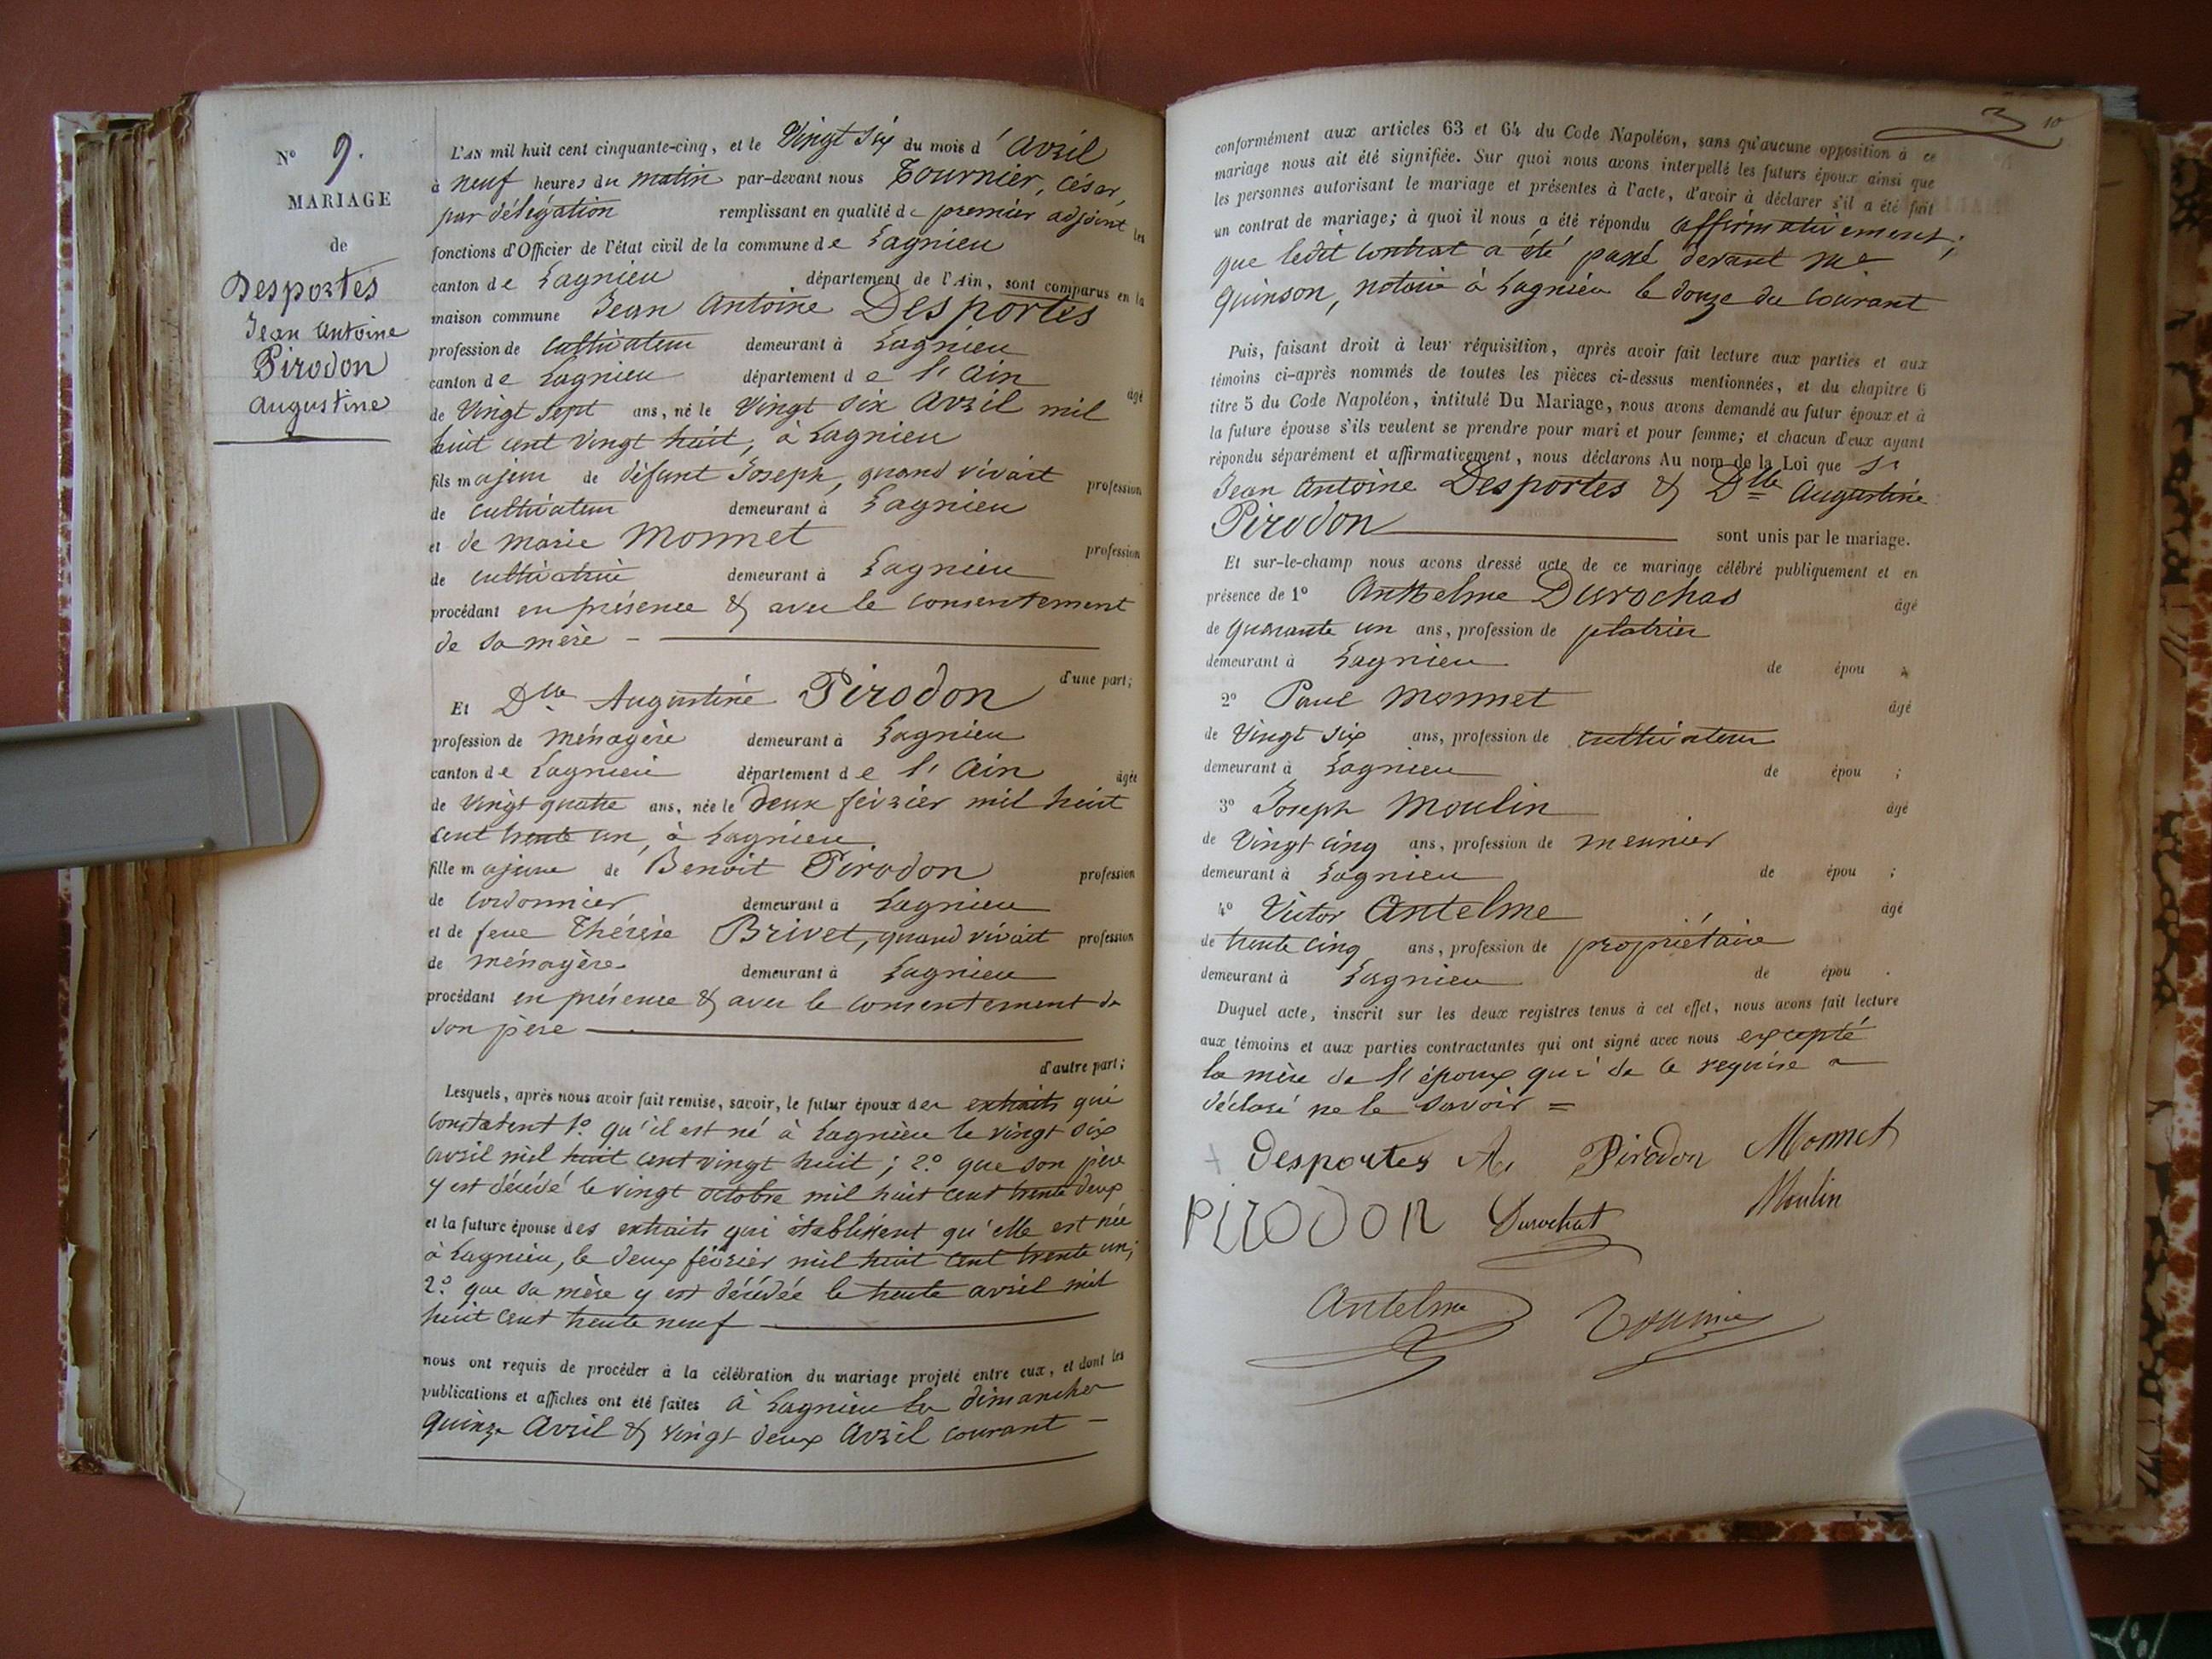 N° 9.
MARIAGE
de
Desportes
Jean Antoine
Pirodon
Augustine
L'AN mil huit cent cinquante-cinq, et le Vingt Six du mois d'Avril
à neuf heures du matin par-devant nous Tournier, César,
par délégation remplissant en qualité de premier adjoint les
fonctions d'Officier de l'état civil de la commune de Lagnieu
canton de Lagnieu département de l'Ain, sont comparus en la
maison commune Jean Antoine Desportes
profession de cultivateur demeurant à Lagnieu
canton de Lagnieu département de l'Ain âgé
de Vingt Sept ans, né le Vingt Six Avril mil
huit cent Vingt huit, à Lagnieu
fils majeur de défunt Joseph, quand vivait profession
de cultivateur demeurant à Lagnieu
et de marie Monnet profession
de cultivatrice demeurant à Lagnieu
procédant en présence & avec le consentement
de sa mère
d'une part;
Et Dlle Augustine Pirodon
profession de ménagère demeurant à Lagnieu
canton de Lagnieu département de l'Ain âgée
de Vingt quatre ans, née le deux février mil huit
cent trente un, à Lagnieu
fille majeure de Benoit Pirodon profession
de cordonnier demeurant à Lagnieu
et de feue Thérèse Brivet, quand vivait profession
de ménagère demeurant à Lagnieu
procédant en présence & avec le consentement de
son père
d'autre part;
Lesquels, après nous avoir fait remise, savoir, le futur époux des extraits qui
constatent 1° qu'il est né à Lagnieu le vingt six
avril mil huit cent vingt huit; 2° que son père
y est décédé le vingt octobre mil huit cent trente deux
et la future épouse des extraits qui établissent qu'elle est née
à Lagnieu, le deux février mil huit cent trente un;
2° que sa mère y est décédée le trente avril mil
huit cent trente neuf
nous ont requis de procéder à la célébration du mariage projeté entre eux, et dont les
publications et affiches ont été faites à Lagnieu les dimanches
quinze Avril & vingt deux Avril courant
10
conformément aux articles 63 et 64 du Code Napoléon, sans qu'aucune opposition à ce
mariage nous ait été signifiée. Sur quoi nous avons interpellé les futurs époux ainsi que
les personnes autorisant le mariage et présentes à l'acte, d'avoir à déclarer s'il a été fait
un contrat de mariage; à quoi il nous a été répondu affirmativement;
que ledit contrat a été passé devant Me
Quinson, notaire à Lagnieu le douze du courant
Puis, faisant droit à leur réquisition, après avoir fait lecture aux parties et aux
témoins ci-après nommés de toutes les pièces ci-dessus mentionnées, et du chapitre 6
titre 5 du Code Napoléon, intitulé Du Mariage, nous avons demandé au futur époux et à
la future épouse s'ils veulent se prendre pour mari et pour femme; et chacun d'eux ayant
répondu séparément et affirmativement, nous déclarons Au nom de la Loi que Sr
Jean Antoine Desportes & Dlle Augustine
Pirodon sont unis par le mariage.
Et sur-le-champ nous avons dressé acte de ce mariage célébré publiquement et en
présence de 1° Anthelme Durochas âgé
de quarante un ans, profession de platrier
demeurant à Lagnieu de épou
2° Paul Monnet âgé
de Vingt Six ans, profession de cultivateur
demeurant à Lagnieu de épou ;
3° Joseph Moulin âgé
de Vingt cinq ans, profession de meunier
demeurant à Lagnieu de épou ;
4° Victor Antelme âgé
de trente cinq ans, profession de propriétaire
demeurant à Lagnieu de épou .
Duquel acte, inscrit sur les deux registres tenus à cet effet, nous avons fait lecture
aux témoins et aux parties contractantes qui ont signé avec nous excepté
la mère de l'époux qui de ce requise a
déclaré ne le savoir =
Desportes A. Pirodon Monnet
PiroDon Durochat Moulin
Antelme Tournier